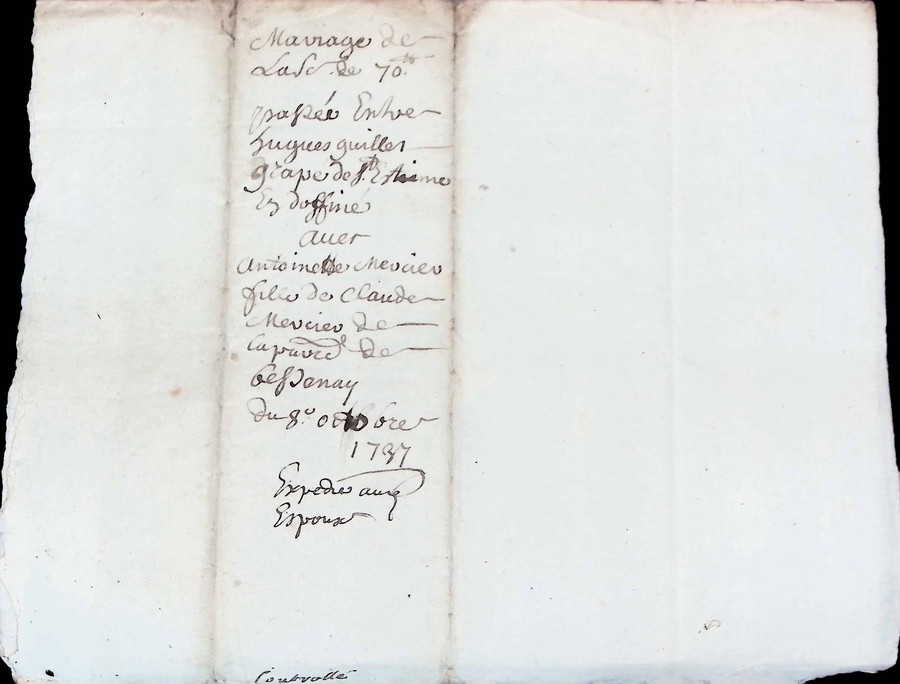 Mariage de
La So.e de 70.tt
passée Entre
hugues guillet
Grapé de s.t Estienne
En doffiné
avec
Antoinette Mercier
fille de Claude
Mercier de
la paroi.e de
bessenay
du 8.e octobre
1737
Expedié aux
Espoux
Controllé